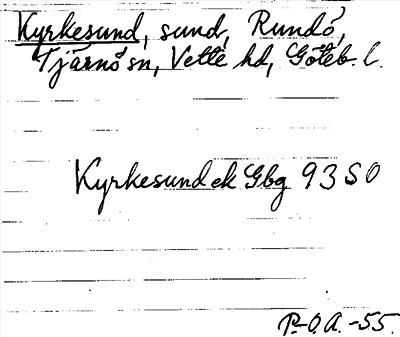 Kyrkesund, sund, Rundö,
Tjärnö sn, Vette hd, Göteb. l.
Kyrkesund ek Gbg 93 SO
P.-O.A. -55.